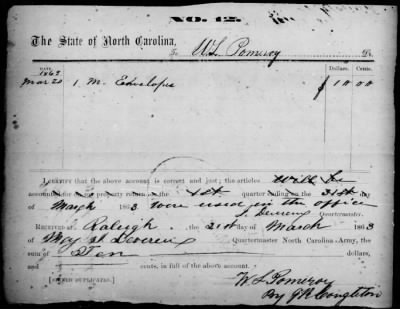 NO. 12.
The State of North Carolina,
To W L Pomeroy Dr.
DATE. Dollars. Cents.
1863
Mar 20 1 M. Envelopes $ 10 00
I CERTIFY that the above account is correct and just; the articles will be
accounted for on my property return on the 1st quarter ending on the 31st day
of March 1863 were used in the office
RECEIVED at Raleigh the 21st day of March 1863
of Quartermaster North Carolina Army, the
sum of Ten dollars,
and cents, in full of the above account.
[SIGNED DUPLICATES.]
W L Pomeroy
By J R Congleton